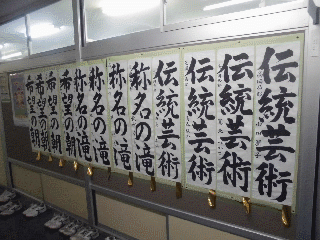 伝統芸術
伝統芸術
伝統芸術
伝統芸術
称名の滝
称名の滝
称名の滝
称名の滝
希望の朝
希望の朝
希望の朝
希望の朝